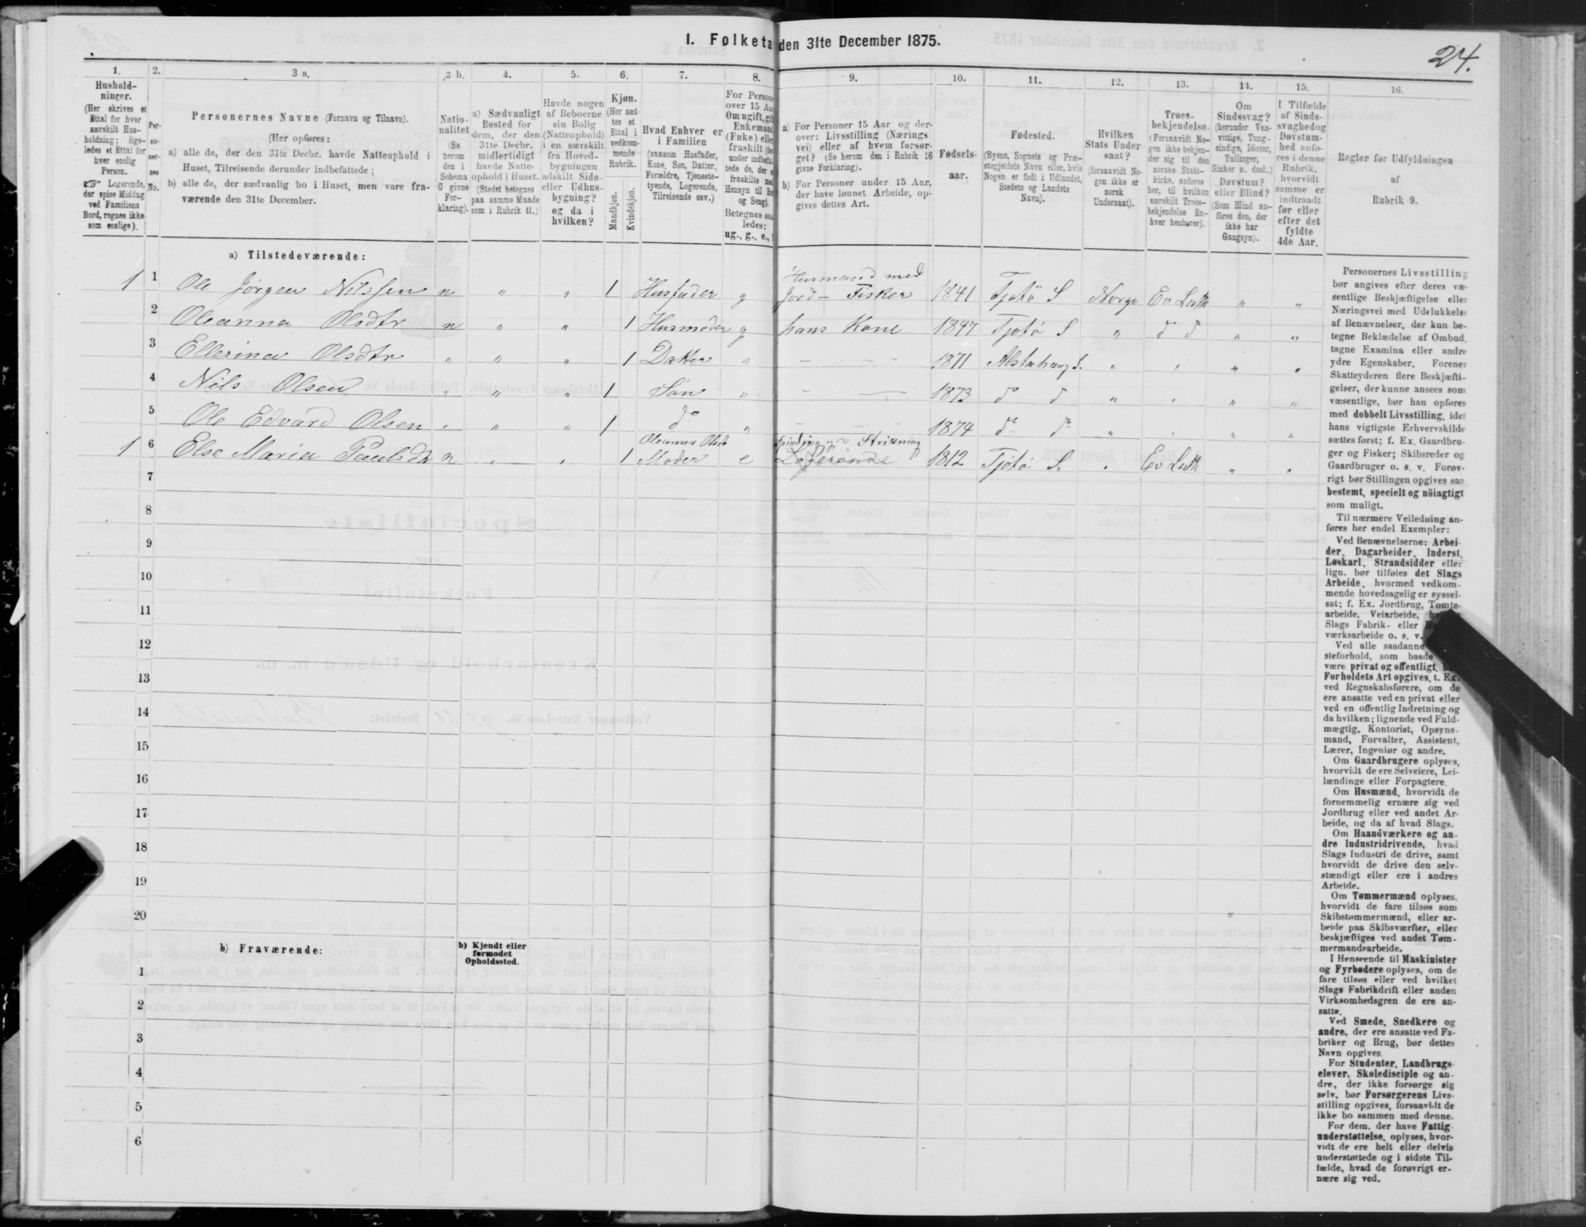 I. Folketa den 31te December 1875.
24.
1.
2.
3 a.
3 b.
4.
5.
6.
7.
8.
9.
10.
11.
12.
13.
14.
15.
16.
Husholdninger.
(Her skrives et
Ettal for hver
særskilt Hus-
holdning; lige-
ledes et Ettal for
hver enslig
Person.
☞ Logerende,
der spise Middag
ved Familiens
Bord, regnes ikke
som enslige).
Per-
so-
ner-
nes
No.
Personernes Navne (Fornavn og Tilnavn).
(Her opføres:
a) alle de, der den 31te Decbr. havde Natteophold i
Huset, Tilreisende derunder indbefattede;
b) alle de, der sædvanlig bo i Huset, men vare fra-
værende den 31te December.
Natio-
nalitet
(Se
herom
den i
Schema
6 givne
For-
klaring).
a) Sædvanligt
Bosted for
dem, der den
31te Decbr.
midlertidigt
havde Natte-
ophold i Huset.
(Stedet betegnes
paa samme Maade
som i Rubrik 11.)
Havde nogen
af Beboerne
sin Bolig
(Natteophold)
i en særskilt
fra Hoved-
bygningen
adskilt Side-
eller Udhus-
bygning?
og da i
hvilken?
Kjøn.
(Her sæt-
tes et
Ettal i
vedkom-
mende
Rubrik.
Mandkjøn.
Kvindekjøn.
Hvad Enhver er
i Familien
(saasom Husfader,
Kone, Søn, Datter,
Forældre, Tjeneste-
tyende, Logerende,
Tilreisende osv.)
For Persone
over 15 Aa
Om ugift, gif
Enkemand
(Enke) elle
fraskilt
Betegnes saa
ledes:
ug., g., e.,
a) For Personer 15 Aar og der-
over: Livsstilling (Nærings
vei) eller af hvem forsør-
get? (Se herom den i Rubrik 16
givne Forklaring).
b) For Personer under 15 Aar,
der have lønnet Arbeide, op-
gives dettes Art.
Fødsels-
aar.
Fødested.
(Byens, Sognets og Præ-
stegjeldets Navn eller, hvis
Nogen er født i Udlandet,
Stedets og Landets
Navn).
Hvilken
Stats Under
saat?
(forsaavidt No-
gen ikke er
norsk
Undersaat).
Troes-
bekjendelse.
(Forsaavidt No-
gen ikke bekjen-
der sig til den
norske Stats-
kirke, anføres
her, til hvilken
særskilt Troes-
bekjendelse En-
hver henhører).
Om
Sindssvag?
(herunder Van-
vittige, Tung-
sindige, Idioter,
Tullinger,
Sinker o. desl.)
Døvstum?
eller Blind?
(Som Blind an-
føres den, der
ikke har
Gangsyn).
I Tilfælde
af Sinds-
svaghed og
Døvstum-
hed anfø-
res i denne
Rubrik,
hvorvidt
samme er
indtraadt
før eller
efter det
fyldte
4de Aar.
Regler for Udfyldningen
af
Rubrik 9.
a) Tilstedeværende:
1 1 Ole Jørgen Nilssen n " " 1 Husfader g Husmand med Jord - Fisker 1841 Tjøtø S Norge Ev Luth " "
2 Oleanna Olsdtr n " " 1 Husmoder g hans Kone 1847 Tjøtø S " do do " "
3 Ellerina Olsdtr " " " 1 Datter " - - - 1871 Alstahaug S. " " " "
4 Nils Olsen " " " 1 Søn " - - 1873 do do " " " "
5 Ole Edvard Olsen " " " 1 do " - - 1874 do do " " " "
1 6 Else Maria Paulsdtr n " " 1 Oleanna Olsd Moder e Logerende 1812 Tjøtø S. " Ev Luth " "
7
8
9
10
11
12
13
14
15
16
17
18
19
20
b) Fraværende:
b) Kjendt eller
formodet
Opholdssted.
1
2
3
4
5
6
Personernes Livsstilling
bør angives efter deres væ-
sentlige Beskjæftigelse eller
Næringsvei med Udelukkelse
af Benævnelser, der kun be-
tegne Beklædelse af Ombud,
tagne Examina eller andre
ydre Egenskaber. Forener
Skatteyderen flere Beskjæfti-
gelser, der kunne ansees som
væsentlige, bør han opføres
med dobbelt Livsstilling, idet
hans vigtigste Erhvervskilde
sættes først; f. Ex. Gaardbru-
ger og Fisker; Skibsreder og
Gaardbruger o. s. v. Forøv-
rigt bør Stillingen opgives saa
bestemt, specielt og nöiagtigt
som muligt.
Til nærmere Veiledning an-
føres her endel Exempler:
Ved Benævnelserne: Arbei-
der, Dagarbeider, Inderst,
Løskarl, Strandsidder eller
lign. bør tilføies det Slags
Arbeide, hvormed vedkom-
mende hovedsagelig er syssel-
sat; f. Ex. Jordbrug, Tomte-
arbeide, Veiarbeide,
Slags Fabrik- eller
værksarbeide o. s. v.
Ved alle saadanne
steforhold, som baade
være privat og offentligt,
Forholdets Art opgives, t. Ex.
ved Regnskabsførere, om de
ere ansatte ved en privat eller
ved en offentlig Indretning og
da hvilken; lignende ved Fuld-
mægtig, Kontorist, Opsyns-
mand, Forvalter, Assistent,
Lærer, Ingeniør og andre.
Om Gaardbrugere oplyses,
hvorvidt de ere Selveiere, Lei-
lændinge eller Forpagtere.
Om Husmænd, hvorvidt de
fornemmelig ernære sig ved
Jordbrug eller ved andet Ar-
beide, og da af hvad Slags.
Om Haandværkere og an-
dre Industridrivende, hvad
Slags Industri de drive, samt
hvorvidt de drive den selv-
stændigt eller ere i andres
Arbeide.
Om Tømmermænd oplyses,
hvorvidt de fare tilsøs som
Skibstømmermænd, eller ar-
beide paa Skibsværfter, eller
beskjæftiges ved andet Tøm-
mermandsarbeide.
I Henseende til Maskinister
og Fyrbødere oplyses, om de
fare tilsøs eller ved hvilket
Slags Fabrikdrift eller anden
Virksomhedsgren de ere an-
satte.
Ved Smede, Snedkere og
andre, der ere ansatte ved Fa-
briker og Brug, bør dettes
Navn opgives.
For Studenter, Landbrugs-
elever, Skoledisciple og an-
dre, der ikke forsørge sig
selv, bør Forsørgerens Livs-
stilling opgives, forsaavidt de
ikke bo sammen med denne.
For dem, der have Fattig-
understøttelse, oplyses, hvor-
vidt de ere helt eller delvis
understøttede og i sidste Til-
fælde, hvad de forøvrigt er-
nære sig ved.